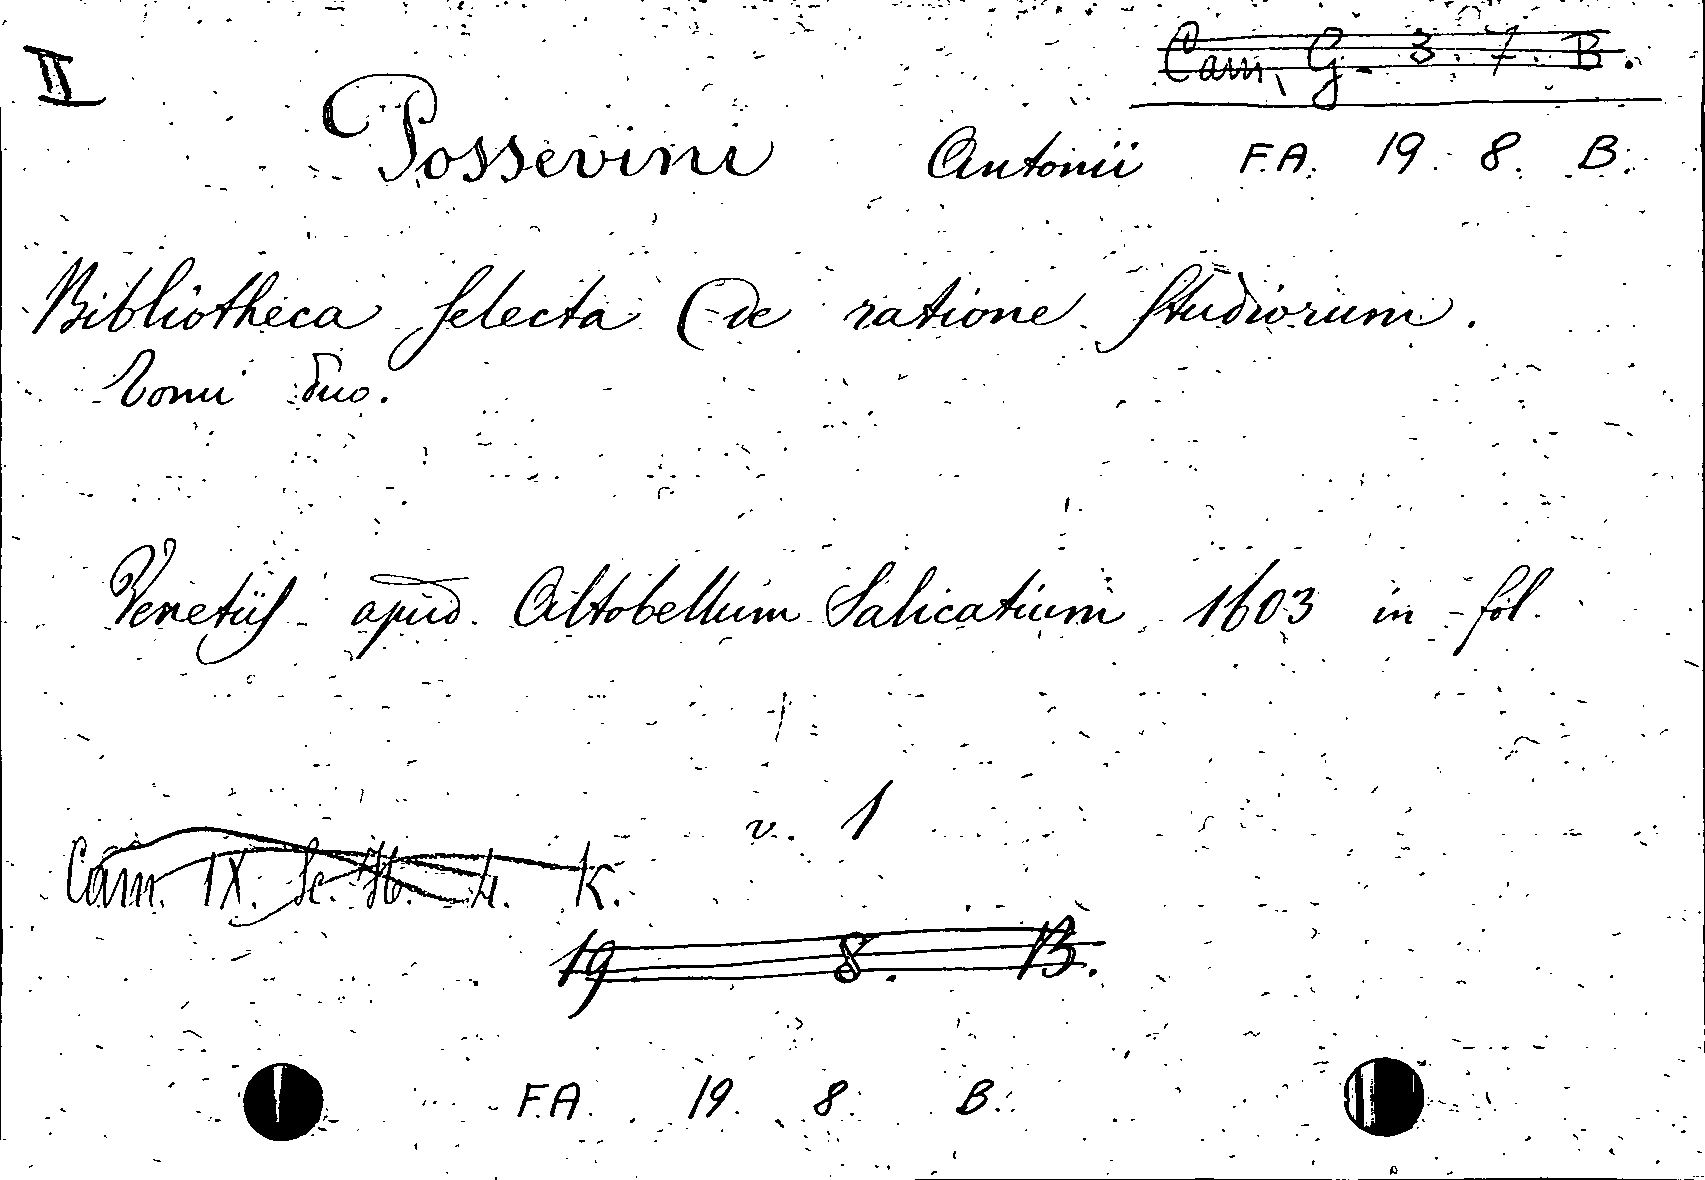 II
Cam. G. 3. 7. B.
Possevini Antonii F.A. 19. 8. B.
Bibliotheca selecta de ratione studiorum.
Tomi duo.
Venetiis apud Altobellum Salicatium 1603 in fol.
v. 1
Cam. IX. Sc. H. 4. K.
19 8. B.
F.A. 19. 8. B.